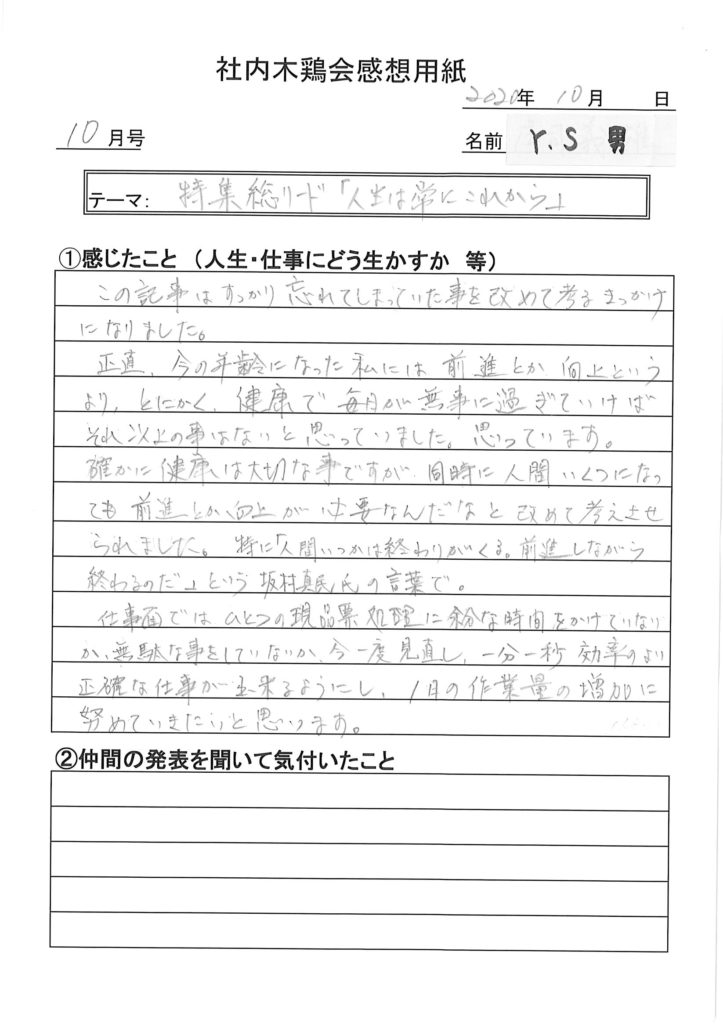 社内木鶏会感想用紙
2020年 10月 日
10月号
名前 Y.S 男
テーマ: 特集総リード「人生は常にこれから」
①感じたこと （人生・仕事にどう生かすか 等）
この記事はすっかり忘れてしまっていた事を改めて考るきっかけ
になりました。
正直、今の年齢になった私には前進とか向上という
より、とにかく、健康で毎日が無事に過ぎていけば
それ以上の事はないと思っていました。思っています。
確かに健康は大切な事ですが、同時に人間いくつになっ
ても前進とか向上が必要なんだなと改めて考えさせ
られました。特に「人間いつかは終わりがくる。前進しながら
終わるのだ」という坂村真民氏の言葉で。
仕事面ではひとつの現品票処理に余分な時間をかけていない
か、無駄な事をしていないか、今一度見直し、一分一秒効率のより
正確な仕事が出来るようにし、1日の作業量の増加に
努めていきたいと思います。
②仲間の発表を聞いて気付いたこと